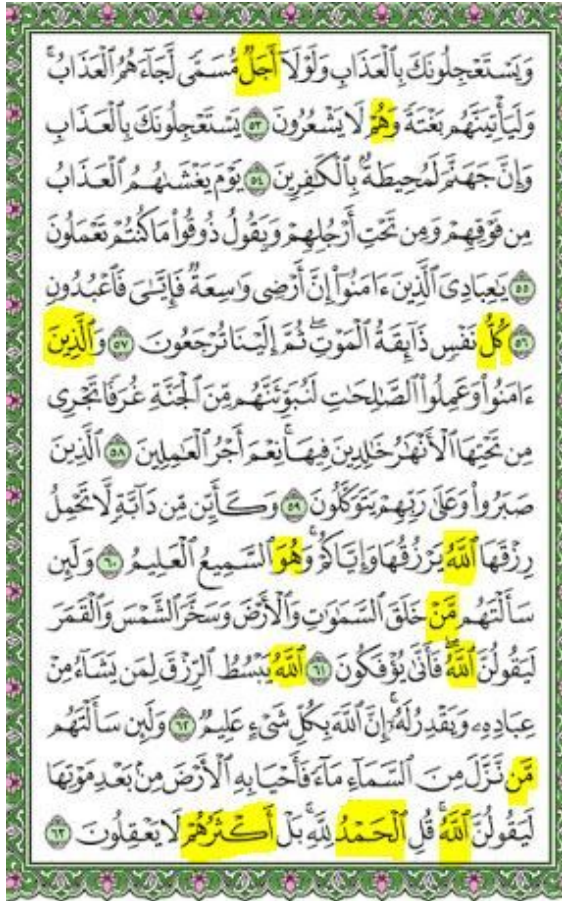 وَيَسْتَعْجِلُونَكَ بِٱلْعَذَابِ وَلَوْلَآ أَجَلٌ مُّسَمًّى لَّجَآءَهُمُ ٱلْعَذَابُۚ
وَلَيَأْتِيَنَّهُم بَغْتَةً وَهُمْ لَا يَشْعُرُونَ ٥٣ يَسْتَعْجِلُونَكَ بِٱلْعَذَابِ
وَإِنَّ جَهَنَّمَ لَمُحِيطَةٌۢ بِٱلْكَٰفِرِينَ ٥٤ يَوْمَ يَغْشَىٰهُمُ ٱلْعَذَابُ
مِن فَوْقِهِمْ وَمِن تَحْتِ أَرْجُلِهِمْ وَيَقُولُ ذُوقُوا۟ مَا كُنتُمْ تَعْمَلُونَ
٥٥ يَٰعِبَادِىَ ٱلَّذِينَ ءَامَنُوٓا۟ إِنَّ أَرْضِى وَٰسِعَةٌ فَإِيَّٰىَ فَٱعْبُدُونِ
٥٦ كُلُّ نَفْسٍ ذَآئِقَةُ ٱلْمَوْتِۖ ثُمَّ إِلَيْنَا تُرْجَعُونَ ٥٧ وَٱلَّذِينَ
ءَامَنُوا۟ وَعَمِلُوا۟ ٱلصَّٰلِحَٰتِ لَنُبَوِّئَنَّهُم مِّنَ ٱلْجَنَّةِ غُرَفًا تَجْرِى
مِن تَحْتِهَا ٱلْأَنْهَٰرُ خَٰلِدِينَ فِيهَاۚ نِعْمَ أَجْرُ ٱلْعَٰمِلِينَ ٥٨ ٱلَّذِينَ
صَبَرُوا۟ وَعَلَىٰ رَبِّهِمْ يَتَوَكَّلُونَ ٥٩ وَكَأَيِّن مِّن دَآبَّةٍ لَّا تَحْمِلُ
رِزْقَهَا ٱللَّهُ يَرْزُقُهَا وَإِيَّاكُمْۚ وَهُوَ ٱلسَّمِيعُ ٱلْعَلِيمُ ٦٠ وَلَئِن
سَأَلْتَهُم مَّنْ خَلَقَ ٱلسَّمَٰوَٰتِ وَٱلْأَرْضَ وَسَخَّرَ ٱلشَّمْسَ وَٱلْقَمَرَ
لَيَقُولُنَّ ٱللَّهُۖ فَأَنَّىٰ يُؤْفَكُونَ ٦١ ٱللَّهُ يَبْسُطُ ٱلرِّزْقَ لِمَن يَشَآءُ مِنْ
عِبَادِهِۦ وَيَقْدِرُ لَهُۥٓۚ إِنَّ ٱللَّهَ بِكُلِّ شَىْءٍ عَلِيمٌ ٦٢ وَلَئِن سَأَلْتَهُم
مَّن نَّزَّلَ مِنَ ٱلسَّمَآءِ مَآءً فَأَحْيَا بِهِ ٱلْأَرْضَ مِنۢ بَعْدِ مَوْتِهَا
لَيَقُولُنَّ ٱللَّهُۚ قُلِ ٱلْحَمْدُ لِلَّهِۚ بَلْ أَكْثَرُهُمْ لَا يَعْقِلُونَ ٦٣